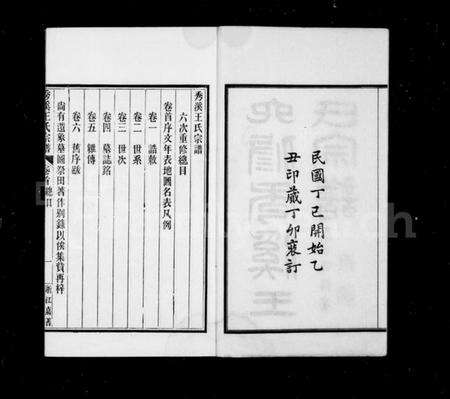 民國丁巳開始乙
丑印葳丁卯裒訂
秀溪王氏宗譜
六次重修總目
卷首序文年表地圖名表凡例
卷一 誥敕
卷二 世系
卷三 世次
卷四 墓誌銘
卷五 雜傳
卷六 舊序跋
尚有遺象墓圖祭田著作別錄以俟集貲再梓
秀溪王氏宗譜 卷首總目 一